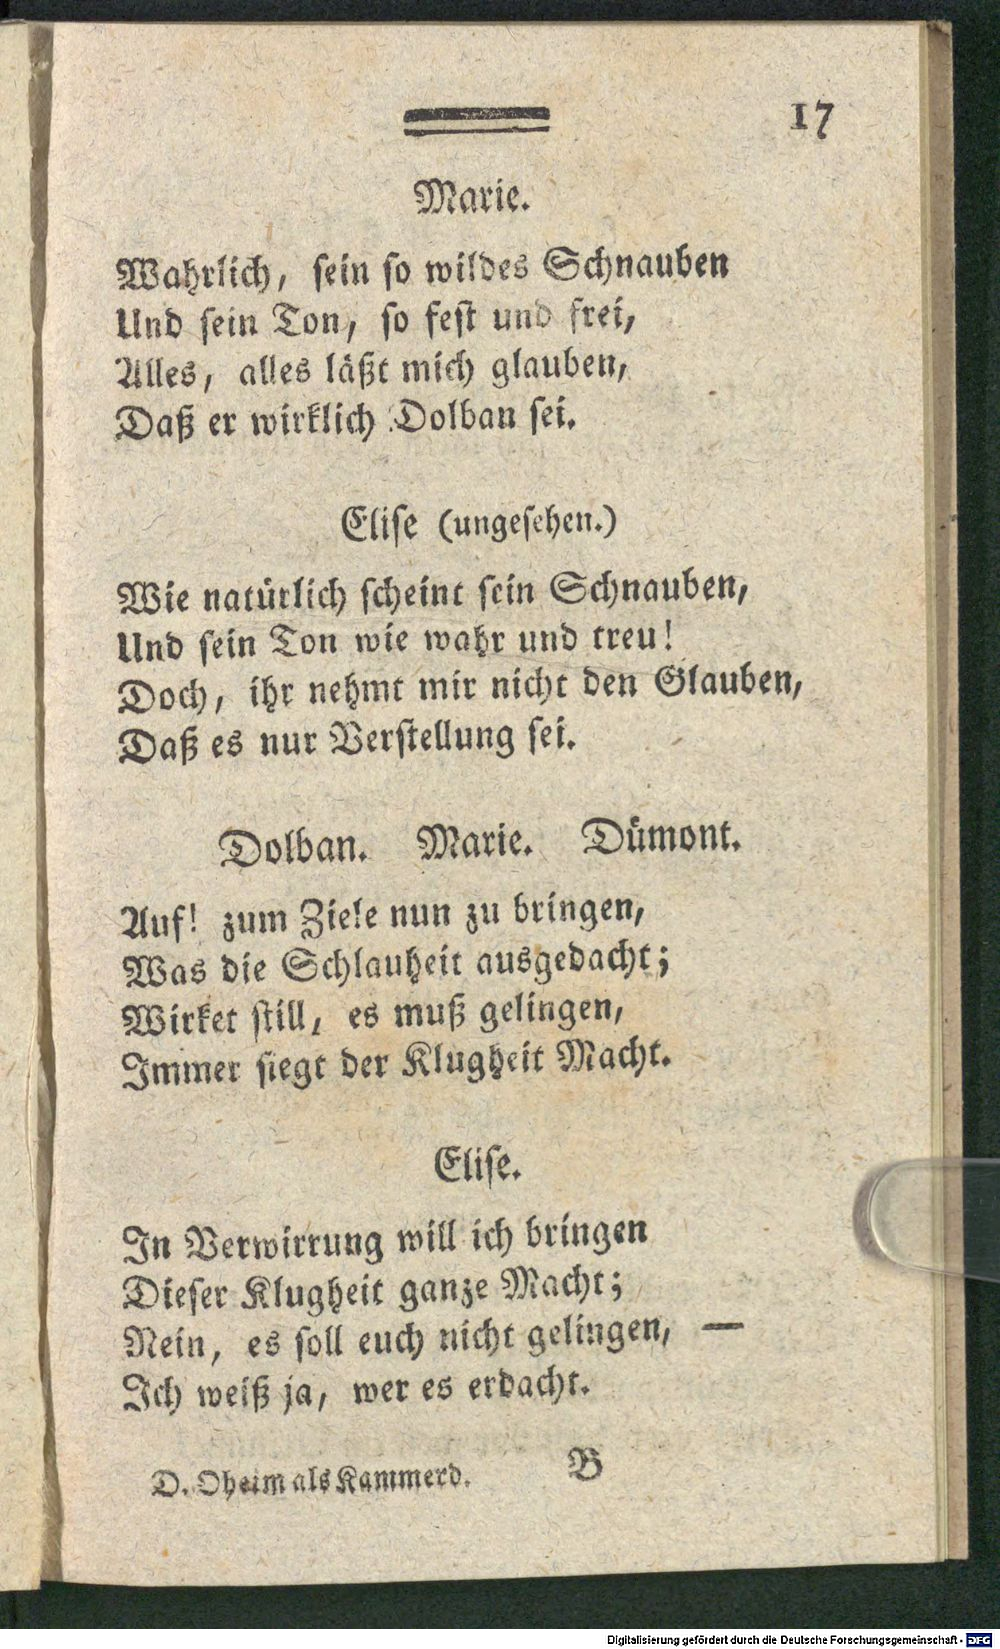 17
Marie.
Wahrlich, sein so wildes Schnauben
Und sein Ton, so fest und frei,
Alles, alles läßt mich glauben,
Daß er wirklich Dolban sei.
Elise (ungesehen.)
Wie natürlich scheint sein Schnauben,
Und sein Ton wie wahr und treu!
Doch, ihr nehmt mir nicht den Glauben,
Daß es nur Verstellung sei.
Dolban. Marie. Dümont.
Auf! zum Ziele nun zu bringen,
Was die Schlauheit ausgedacht;
Wirket still, es muß gelingen,
Immer siegt der Klugheit Macht.
Elise.
In Verwirrung will ich bringen
Dieser Klugheit ganze Macht;
Nein, es soll euch nicht gelingen, —
Ich weiß ja, wer es erdacht.
D. Oheim als Kammerd. B
Digitalisierung gefördert durch die Deutsche Forschungsgemeinschaft - DFG